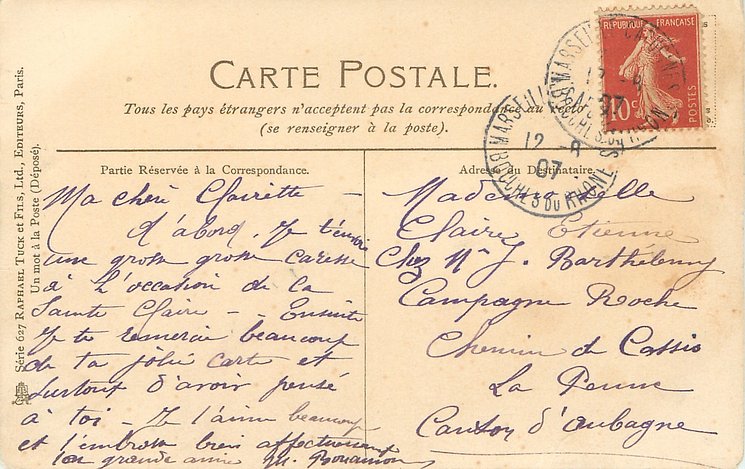 CARTE POSTALE.
Tous les pays étrangers n'acceptent pas la correspondance au recto
(se renseigner à la poste).
REPUBLIQUE FRANÇAISE
10c
POSTES
MARSEILLE
12 - 8
07
BOUCHES DU RHONE
MARSEILLE
12 - 8
07
BOUCHES DU RHONE
Série 627 RAPHAEL TUCK ET FILS, LTD., EDITEURS, Paris.
Un mot à la Poste (Déposé).
Partie Réservée à la Correspondance.
Ma chère Clairette –
d'abord, Je t'envoie
une grosse grosse caresse
à l'occasion de la
Sainte Claire – Ensuite
Je te remercie beaucoup
de ta jolie carte et
surtout d'avoir pensé
à toi – Je t'aime beaucoup
et t'embrasse bien affectueusement
ta grande amie M.
Adresse du Destinataire.
Mademoiselle
Claire Etienne
Chez Mr J. Barthélemy
Campagne Roche
Chemin de Cassis
La Penne
Canton d'Aubagne